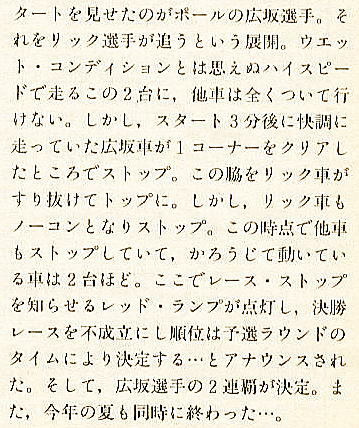 タートを見せたのがポールの広坂選手。そ
れをリック選手が追うという展開。ウエッ
ト・コンディションとは思えぬハイスピー
ドで走るこの2台に，他車は全くついて行
けない。しかし，スタート3分後に快調に
走っていた広坂車が1コーナーをクリアし
たところでストップ。この脇をリック車が
すり抜けてトップに。しかし，リック車も
ノーコンとなりストップ。この時点で他車
もストップしていて，かろうじて動いてい
る車は2台ほど。ここでレース・ストップ
を知らせるレッド・ランプが点灯し，決勝
レースを不成立にし順位は予選ラウンドの
タイムにより決定する…とアナウンスされ
た。そして，広坂選手の2連覇が決定。ま
た，今年の夏も同時に終わった…。